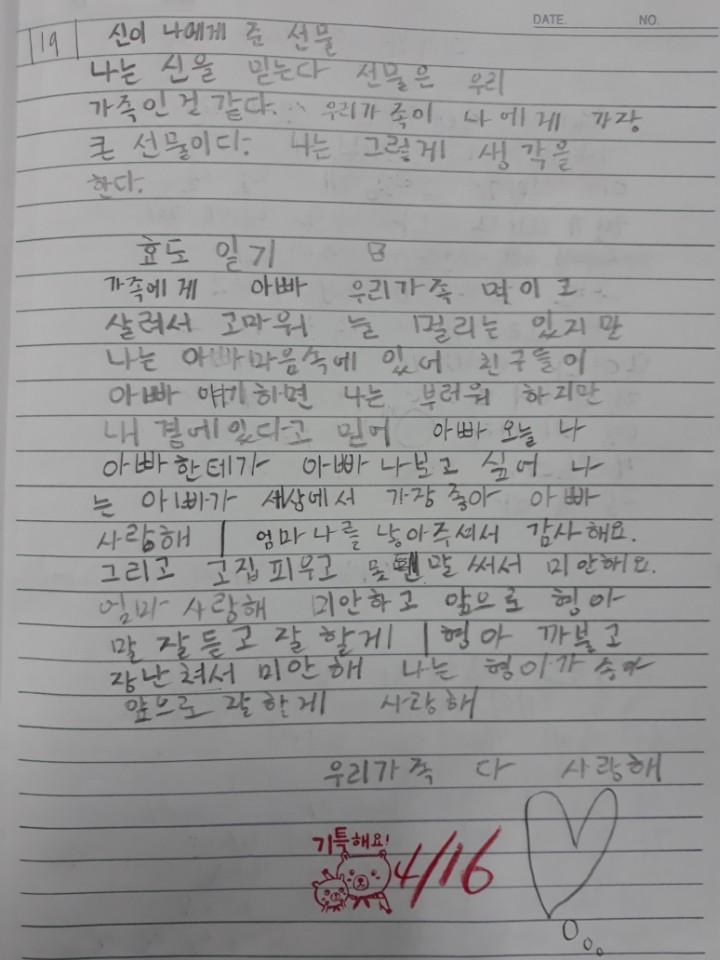 DATE. NO.
19 신이 나에게 준 선물
나는 신을 믿는다 선물은 우리
가족인 것 같다. 우리가족이 나에게 가장
큰 선물이다. 나는 그렇게 생각을
한다.
효도 일기
가족에게 아빠 우리가족 먹이고
살려서 고마워 눌 1걸리는 있지만
나는 아빠마음속에 있어 친구들이
아빠 얘기하면 나는 부러워 하지만
내 곁에있다고 믿어 아빠 오늘 나
아빠한테가 아빠 나보고 싶어 나
는 아빠가 세상에서 가장 좋아 아빠
사랑해 | 엄마 나를 낳아주셔서 감사해요.
그리고 고집피우고 못된말써서 미안해요.
엄마 사랑해 미안하고 앞으로 형아
말 잘듣고 잘 할게 | 형아 까불고
장난쳐서 미안해 나는 형아가
앞으로 잘할게 사랑해
우리가족 다 사랑해
기특해요!
4/16